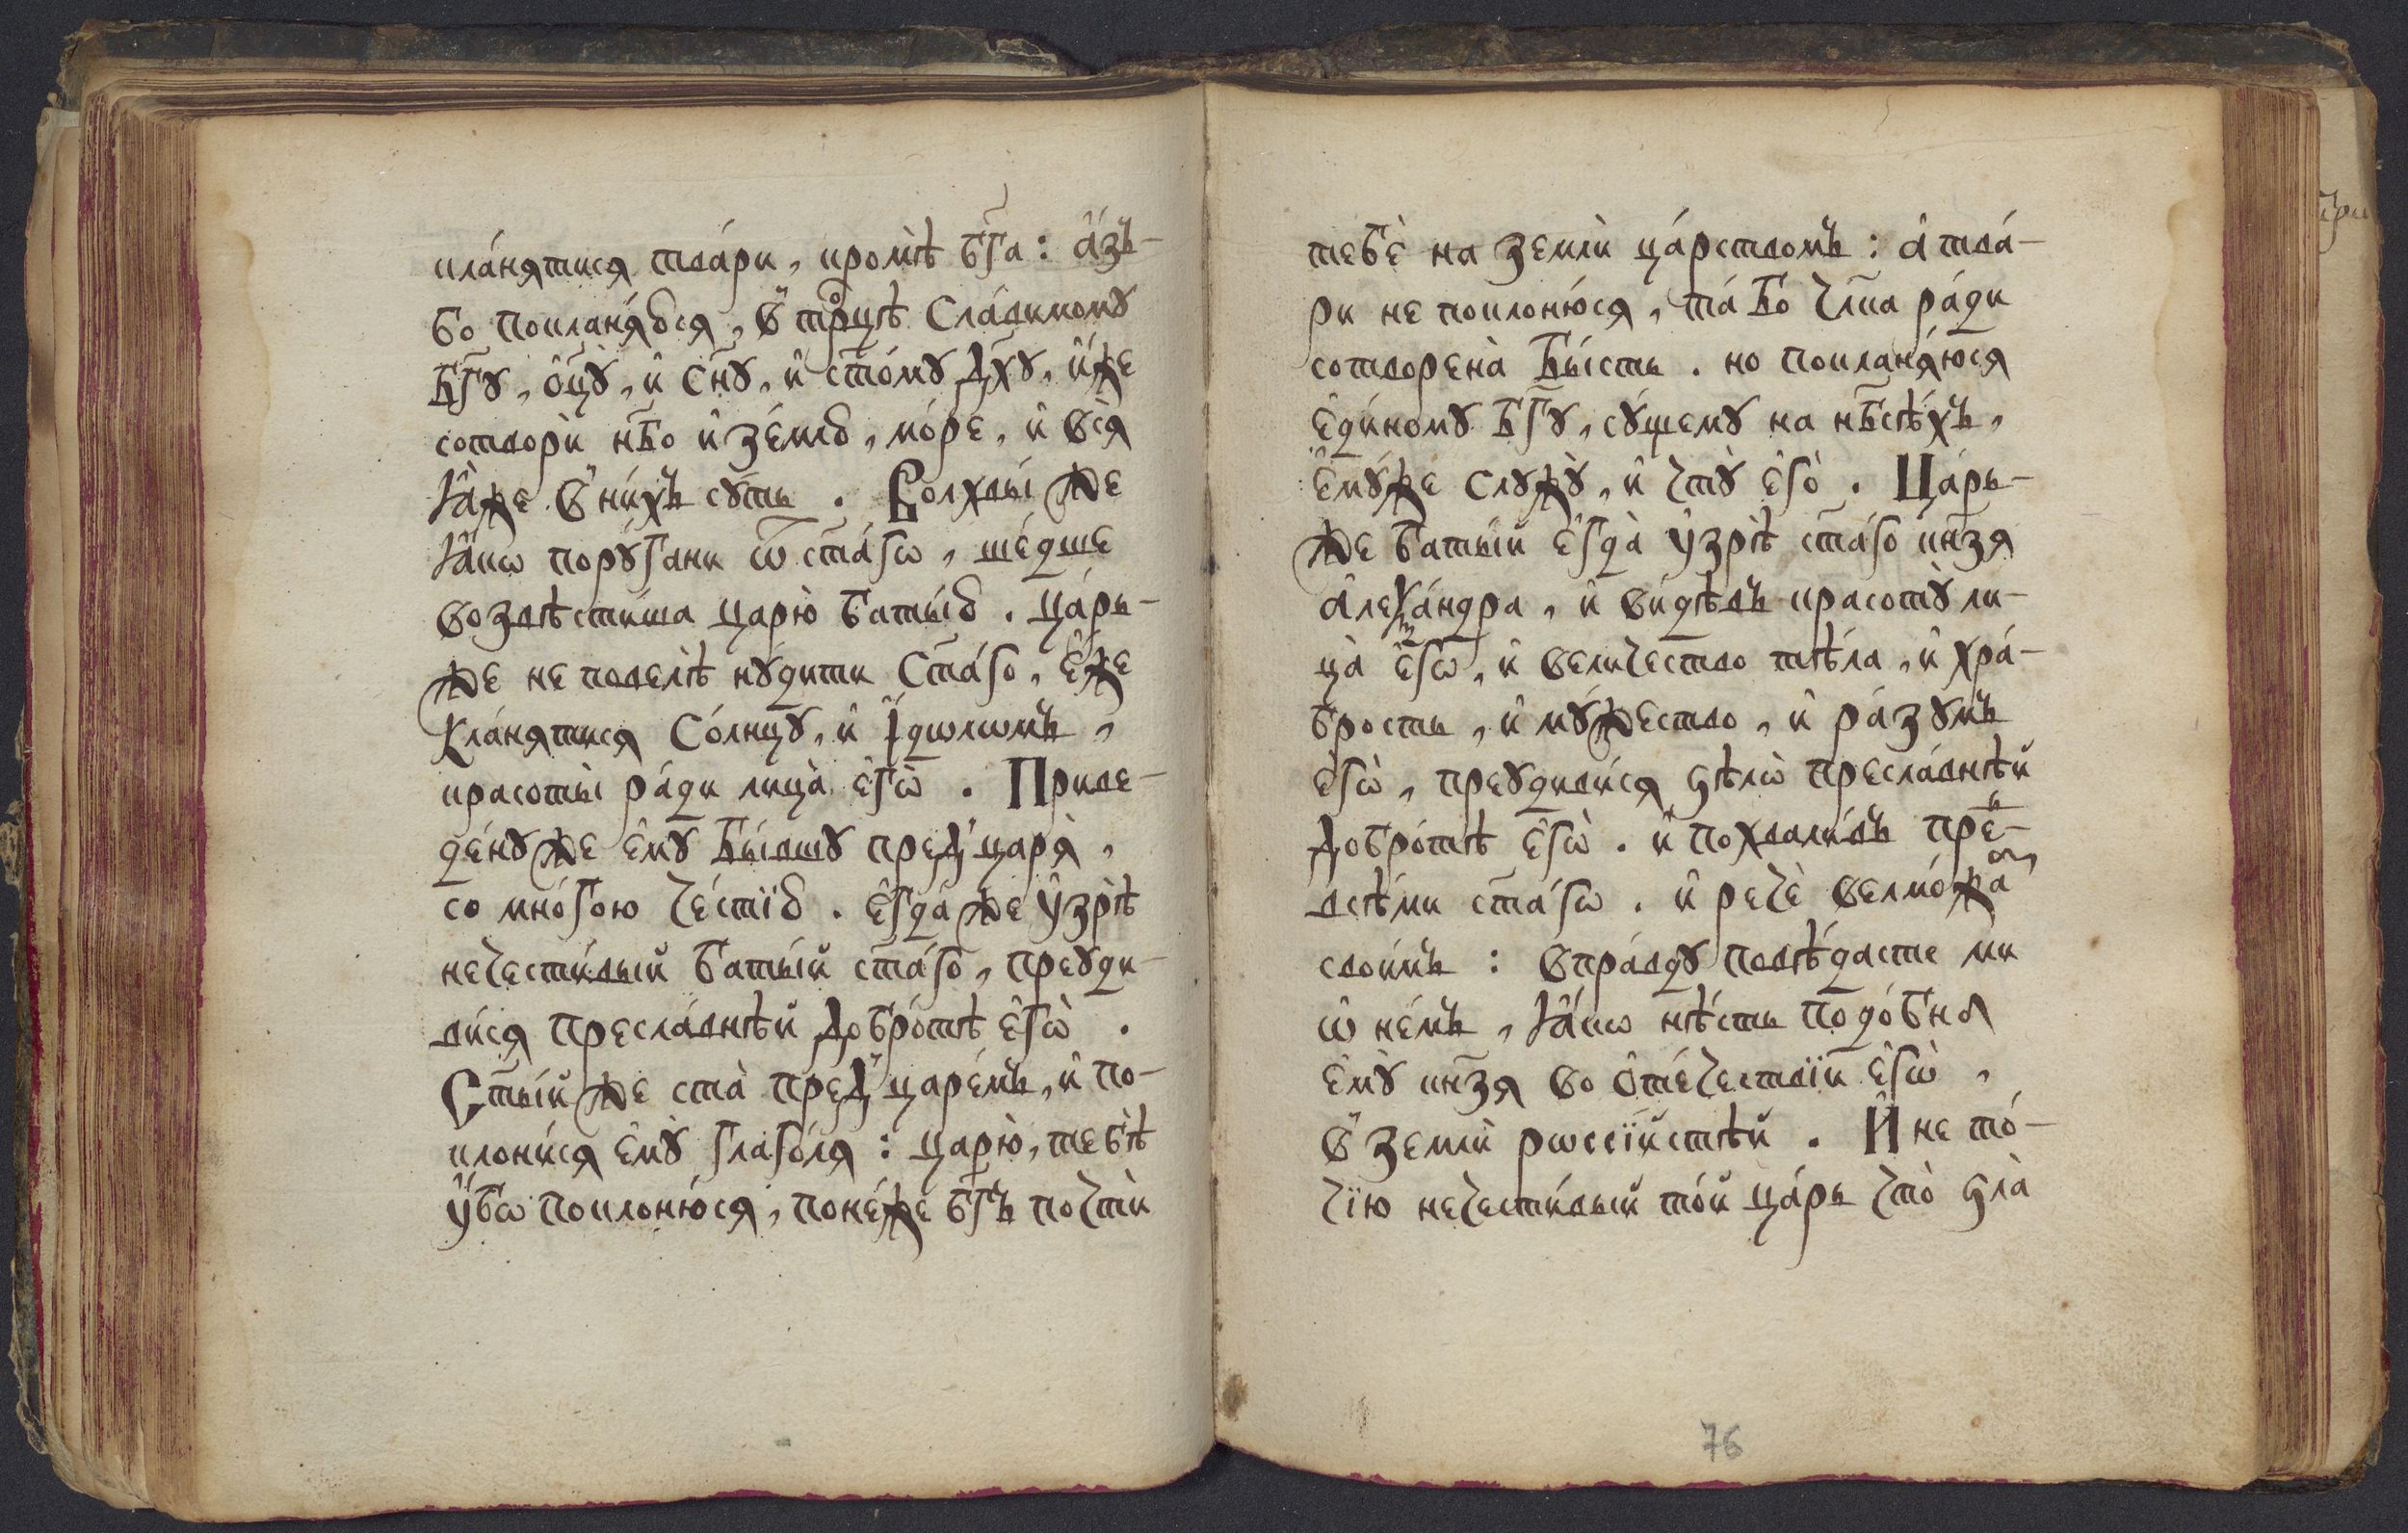 кла́нятися тва́ри, кромѣ̀ бг҃а: а҆́зъ-
бо покланѧ́юся, в̾ трⷪ҇цѣ сла́вимомꙋ
бг҃ꙋ, ѻ҆ц҃ꙋ̀, и҆ сн҃ꙋ, и҆ ст҃о́мꙋ дх҃ꙋ, и҆́же
сотворѝ нб҃о и҆ зе́млю, мо́ре, и҆ всѧ̀
ꙗ҆̀же в̾ ни́хъ сꙋ́ть. Волхвы́ же
ꙗ҆́кѡ пορꙋ́гани ѿ ст҃а́гѡ, ше́дше
возвѣсти́ша царю̀ баты́ю. Ца́рь-
же не повелѣ̀ нꙋ́дити ст҃а́го, є҆́же
кла́нятися со́лнцꙋ, и҆ і҆́дѡлѡмъ,
красоты̀ ра́ди лица̀ є҆гѡ̀. Приве-
де́нꙋ же є҆мꙋ̀ бы́вшꙋ пред̾ царя̀,
со мно́гою че́стїю. є҆гда́ же ᲂу҆зрѣ̀
нечести́вый баты́й ст҃а́го, преꙋди-
ви́ся пресла́внѣй добро́тѣ є҆гѡ̀.
Ст҃ы́й же ста̀ пред̾ царе́мъ, и҆ по-
клони́ся є҆мꙋ̀ глаго́ля: царю̀, тебѣ̀
ᲂу҆́бѡ поклоню́ся, поне́же бг҃ъ почтѝ
тебѐ на землѝ ца́рствомъ: а҆ тва́-
ри не поклоню́ся, та́ бо чл҃ка ра́ди
сотворена̀ бы́сть. но покланя́юся
є҆ди́номꙋ бг҃ꙋ, сꙋ́щемꙋ на нб҃сѣ́хъ,
є҆мꙋ́же слꙋжꙋ̀, и҆ чтꙋ̀ є҆го̀. Ца́рь-
же баты́й є҆гда̀ ᲂу҆зрѣ̀ ст҃а́го кн҃зя
а҆леѯа́ндра, и҆ ви́дѣвъ красотꙋ̀ ли-
ца̀ є҆гѡ̀, и҆ вели́чество тѣ́ла, и҆ хра́-
брость, и҆ мꙋ́жество, и҆ ра́зꙋмъ
є҆гѡ̀, преꙋдиви́ся ѕѣлѡ̀ пресла́внѣй
добро́тѣ є҆гѡ̀. и҆ похвали́въ преⷣ-
всѣ́ми ст҃а́гѡ. и҆ речѐ велмо́жаⷨ
свои́мъ: впра́вдꙋ повѣ́дасте ми
ѡ҆ не́мъ, ꙗ҆́кѡ нѣ́сть подо́бна
є҆мꙋ̀ кн҃зя во ѻ҆те́чествїи є҆гѡ̀,
в̾ землѝ рѡссі́йстѣй. И҆ не то́-
чїю нечести́вый то́й ца́рь что̀ ѕла̀
76